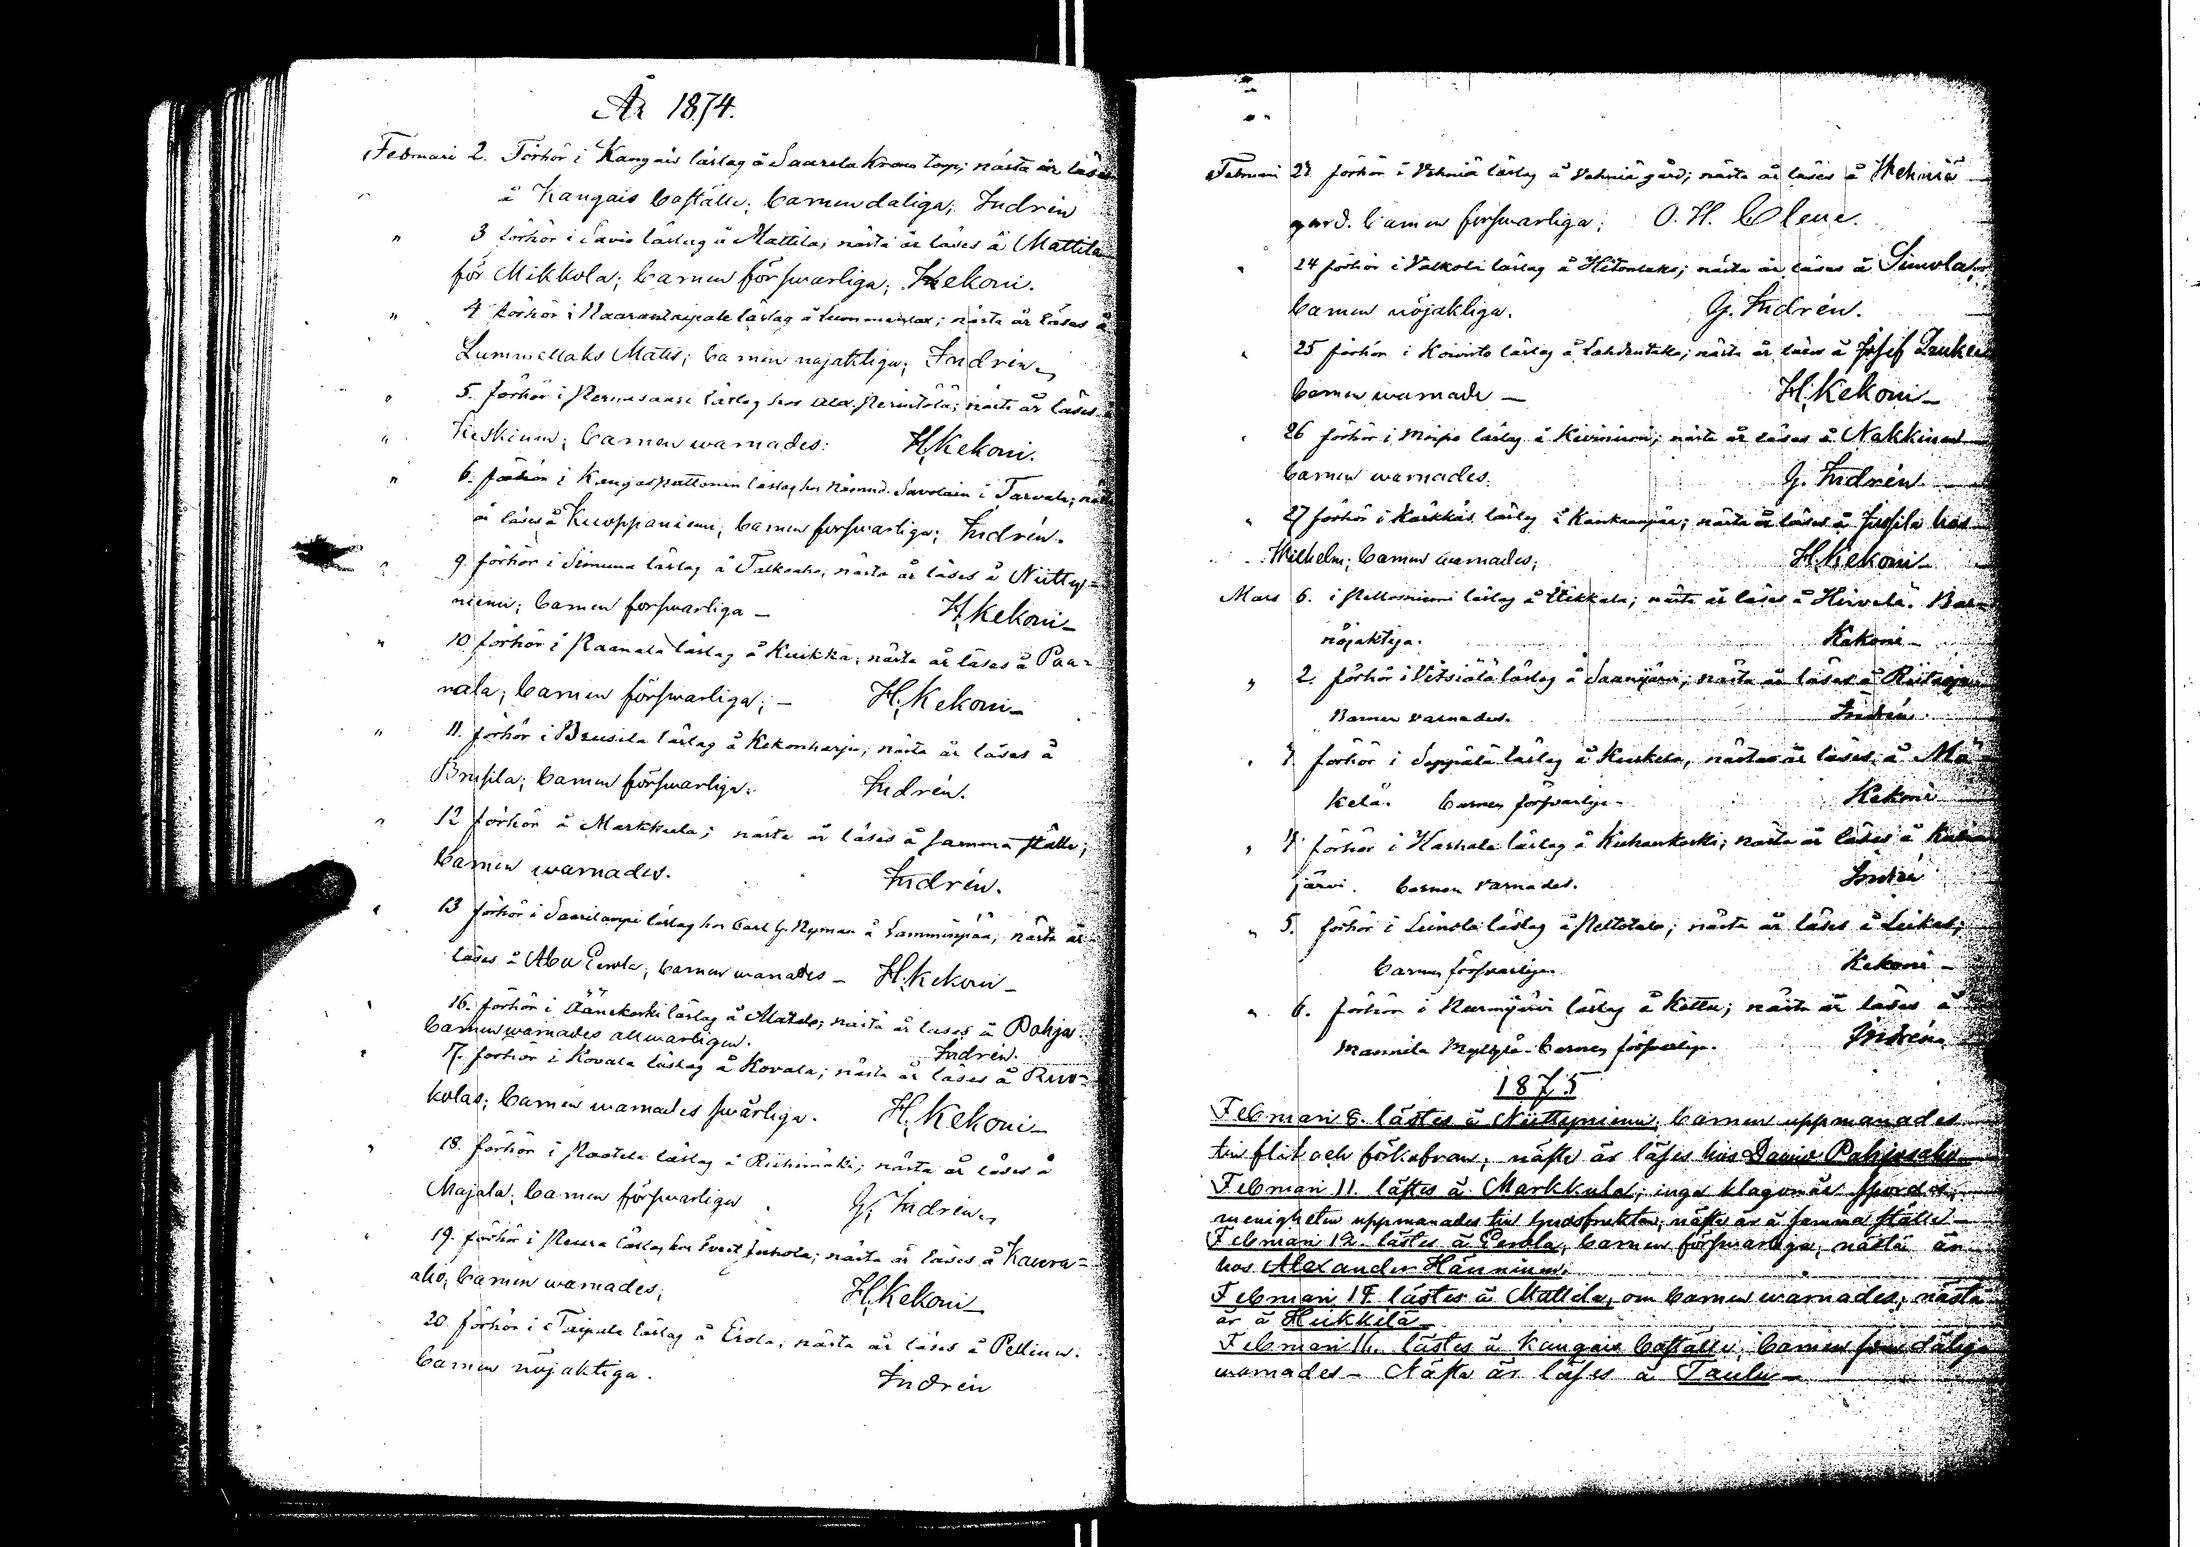 År 1874.
Februari 2. Förhör i Kangais läslag å Saarela Krono torp; nästa år läses
å Kangais Boställe; Barnen daliga; Indrén
" 3 förhör i Savio läslag å Mattila; nästa år läses å Mattila
för Mikkola; Barnen försvarliga; Kekoni.
" 4 förhör i läslag å ; nästa år läses å
Lummellaks Matts; Barnen nöjaktliga; Indrén
" 5. förhör i läslag hos Alex. ; nästa år läses å
Keskinen; Barnen warnades: H. Kekoni.
" 6. förhör i läslag hos Nämnd. Savolain i Tarvala; nästa
år läses å Kuoppaniemi; Barnen forsvarliga; Indrén.
" 9. förhör i Simuna läslag å Talkoaho; nästa år läses å Niitty=
niemi; Barnen forsvarliga – H. Kekoni –
" 10 förhör i Paanala läslag å Kuikka; nästa år läses å Paa=
nala; Barnen försvarliga; – H. Kekoni –
" 11. förhör i Brusila läslag å Kekonharju; nästa år läses å
Brusila; Barnen försvarliga: Indrén.
" 12 förhör å Markkula; nästa år läses å samma ställe;
Barnen warnades. Indrén.
" 13 förhör i Saarilampi läslag hos Carl G. Nyman å Lamminpää; nästa år
läses å Abu Eerola; Barnen wanades – H. Kekoni –
" 16. förhör i Äänekoski läslag å ; nästa år läses å Pohja.
Barnen warnades allwarligen. Indrén.
" 17. förhör i Kovala läslag å Kovala; nästa år läses å Ruo=
kolas; Barnen warnades swårliga. H. Kekoni –
" 18. förhör i läslag å Riihimäki; nästa år läses å
Majala; Barnen försvarliga G. Indrén
" 19. förhör i läslag hos Juhola; nästa år läses å Kaura=
aho; Barnen warnades; H. Kekoni –
20. förhör i Taipale läslag å Erola; nästa år läses å Pellinen.
Barnen nöjaktiga. Indrén
Februari 23. förhör i Vehniä läslag å Vehniä gård; nästa år läses å Wehniä
gård. Barnen försvarliga; O. H. Cleve.
" 24 förhör i Valkola läslag å Hitonlaks; nästa år läses å Simola,
Barnen nöjakliga. G. Indrén.
" 25 förhör i Koivisto läslag å ; nästa år läses å Josef
Barnen warnade – H. Kekoni –
" 26 förhör i läslag å Kiviniemi; nästa år läses å Nakkinen
Barnen warnades. G. Indrén
" 27 förhör i Kärkkäs läslag å ; nästa år läses å Jussila hos
Wilhelm; Barnen warnades; H. Kekoni –
Mars 6. i läslag å Eikkala; nästa år läses å Hirvelä.
nöjaktiga. Kekoni –
" 2. förhör i Vitsiälä läslag å Saanijärvi; nästa år läses å
Barnen varnades. Indrén.
" 3 förhör i Seppälä läslag å Kuskela, nästa år läses å Mä
kelä. Barnen försvarliga. Kekoni
" 4 förhör i läslag å Kuhankoski; nästa år läses å
järvi. Barnen varnades. Indrén
" 5. förhör i Leinola läslag å ; nästa år läses å
Barnen försvarliga Kekoni –
" 6. förhör i Nurmijärvi läslag å Kettu; nästa år läses å
Mannila Myllylä. Barnen försvarliga. Indrén
1875
Februari 8. lästes å Niittyniemi; Barnen uppmanades
till flit och förkofran; näste år läses hos David Pohjosaho
Februari 11. lästes å Markkula; inga klagomål spordes;
menigheten uppmanades till Gudsfruktan; näste år å samma ställe –
Februari 12. lästes å Eerola; Barnen försvarliga; nästa år
hos Alexander Hänninen.
Februari 14 lästes å Mattila; om Barnen warnades; nästa
år å Heikkilä –
Februari 16. lästes å Kangais Boställe; Barnen som dåliga
warnades – Näste år läses å Taulu –